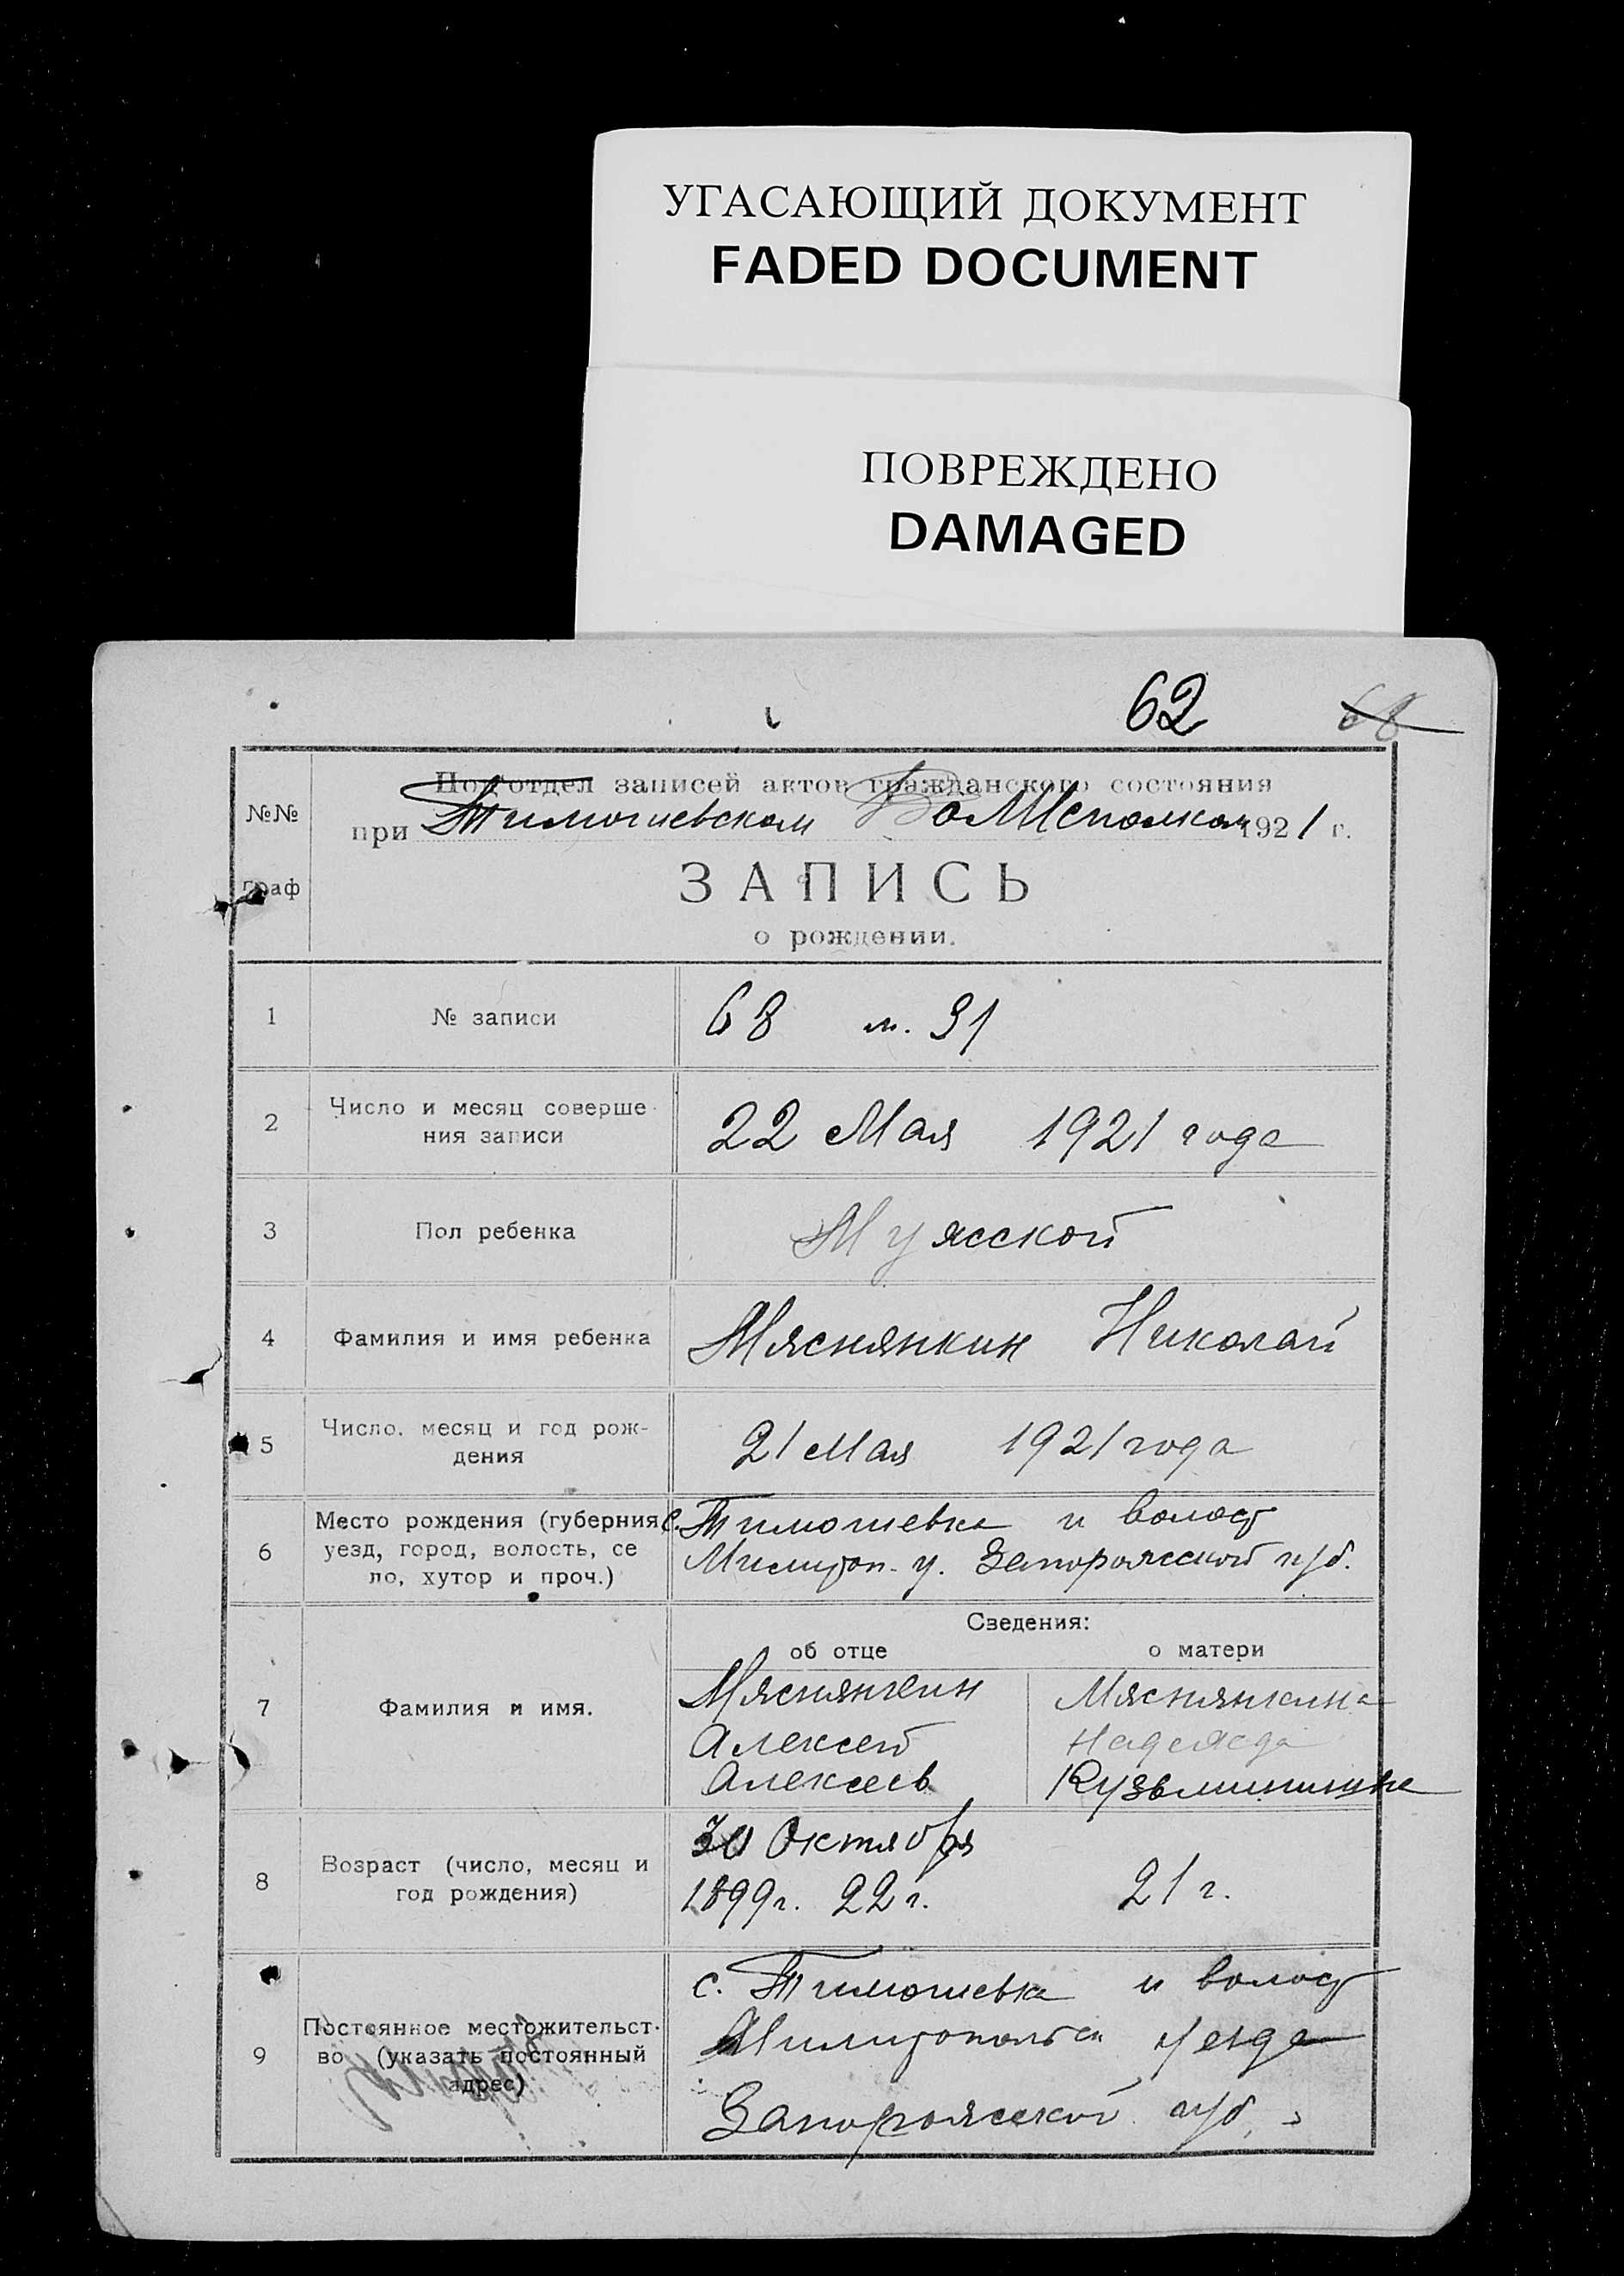 УГАСАЮЩИЙ ДОКУМЕНТ
FADED DOCUMENT
ПОВРЕЖДЕНО
DAMAGED
62 68
№№ граф
Подотдел записей актов гражданского состояния
при Тимошевском ВолИсполком 1921 г.
ЗАПИСЬ
о рождении.
1 № записи 68 м. 31
2 Число и месяц соверше
ния записи 22 Мая 1921 года
3 Пол ребенка Мужской
4 Фамилия и имя ребенка Мяснянкин Николай
5 Число, месяц и год рож-
дения 21 Мая 1921 года
Место рождения (губерния с. Тимошевка и волост
6 уезд, город, волость, се Мелитоп. у. Запорожской губ.
ло, хутор и проч.)
Сведения:
об отце о матери
7 Фамилия и имя. Мяснянкин Мяснянкина
Алексей Надежда
Алексеев
8 Возраст (число, месяц и 30 Октября
год рождения) 1899 г. 22 г. 21 г.
с. Тимошевка и волост
9 Постоянное местожительст-
во (указать постоянный уезда
адрес) Запорожской губ.